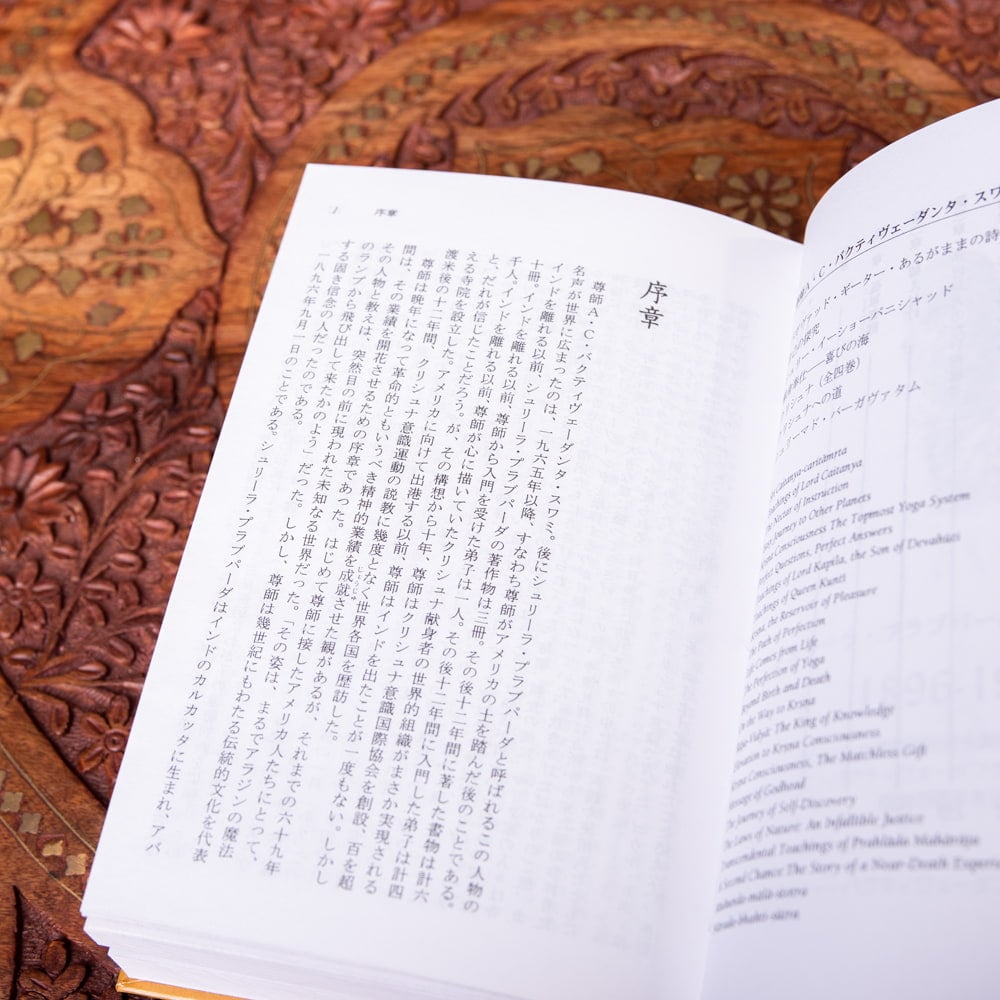 A・C・バクティヴェーダンタ・スワ
ギーター・あるがままの詩
の探究
イーショーパニシャッド
喜びの海
(全四巻)
への道
バーガヴァタム
Caitanya-caritāmṛta
of Lord Caitanya
Nectar of Instruction
Journey to Other Planets
Consciousness The Topmost Yoga System
Questions, Perfect Answers
of Lord Kapila, the Son of Devahūti
of Queen Kuntī
the Reservoir of Pleasure
Path of Perfection
Comes from Life
Perfection of Yoga
Birth and Death
the Way to Kṛṣṇa
The King of Knowledge
to Kṛṣṇa Consciousness
Consciousness, The Matchless Gift
of Godhead
The Journey of Self-Discovery
The Laws of Nature: An Infallible Justice
Teachings of Prahlāda Mahārāja
A Second Chance The Story of a Near-Death
序章
序章
尊師A・C・バクティヴェーダンタ・スワミ。後にシュリーラ・プラブパーダと呼ばれるこの人物の
名声が世界に広まったのは、一九六五年以降、すなわち尊師がアメリカの土を踏んだ後のことである。
インドを離れる以前、シュリーラ・プラブパーダの著作物は三冊。その後十二年間に著した書物は計六
十冊。インドを離れる以前、尊師から入門を受けた弟子は一人。その後十二年間に入門した弟子は計四
千人。インドを離れる以前、尊師が心に描いていたクリシュナ献身者の世界的組織がまさか実現される
と、だれが信じたことだろう。が、その構想から十年、尊師はクリシュナ意識国際協会を創設、百を超
える寺院を設立した。アメリカに向けて出港する以前、尊師はインドを出たことが一度もない。しかし
渡米後の十二年間、クリシュナ意識運動の説教に幾度となく世界各国を歴訪した。
尊師は晩年になって革命的ともいうべき精神的業績を成就させた観があるが、それまでの六十九年
間は、その業績を開花させるための序章であった。はじめて尊師に接したアメリカ人たちにとって、
その人物と教えは、突然目の前に現われた未知なる世界だった。「その姿は、まるでアラジンの魔法
のランプから飛び出して来たかのよう」だった。しかし、尊師は幾世紀にもわたる伝統的文化を代表
する固き信念の人だったのである。
一八九六年九月一日のことである。シュリーラ・プラブパーダはインドのカルカッタに生まれ、アバ